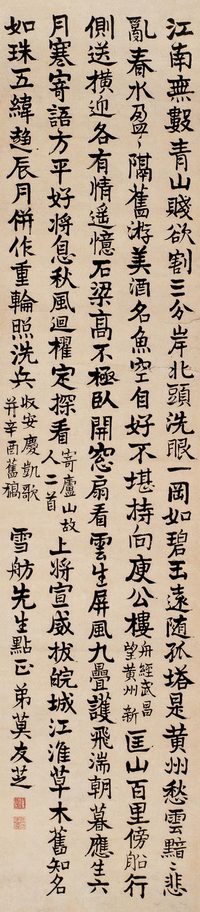 江南無數青山賤欲割三分岸北頭洗眼一岡如碧玉遠隨孤塔是黃州愁雲黯〻悲
亂春水盈〻隔舊游美酒名魚空自好不堪持向庾公樓舟經武昌望黃州新匡山百里傍船行
側送橫迎各有情遥憶石梁高不極臥開窓扇看雲生屏風九疊護飛湍朝暮應生六
月寒寄語方平好將息秋風迴櫂定探看寄廬山故人二首上將宣威拔皖城江淮草木舊知名
如珠五緯趨辰月併作重輪照洗兵收安慶凱歌并辛酉舊稿雪舫先生點正弟莫友芝